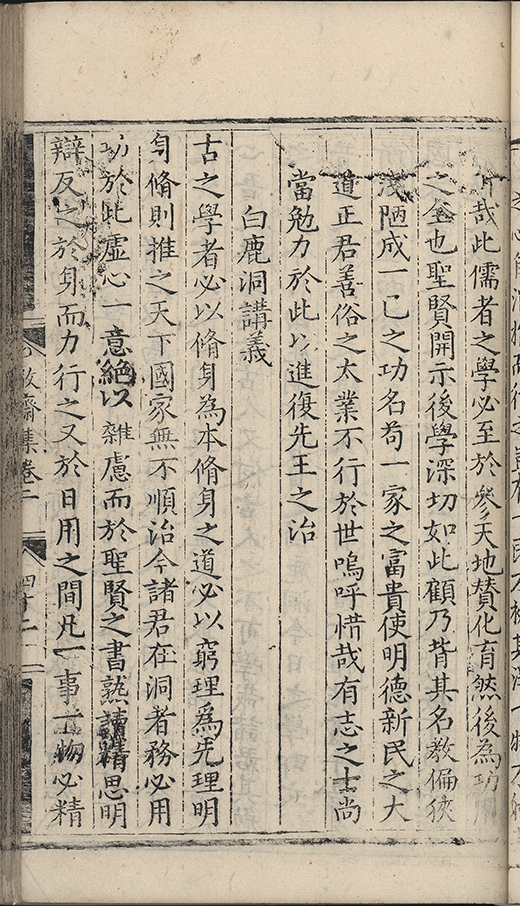 哉此儒者之學必至於參天地贊化育然後為功用
之全也聖賢開示後學深切如此顧乃背其名教偏狹
淺陋成一己之功名苟一家之富貴使明德新民之大
道正君善俗之大業不行於世嗚呼惜哉有志之士尚
當勉力於此以進復先王之治
白鹿洞講義
古之學者必以脩身為本脩身之道必以窮理為先理明
身脩則推之天下國家無不順治今諸君在洞者務必用
功於此虛心一意絕以雜慮而於聖賢之書熟讀精思明
辯反之於身而力行之又於日用之間凡一事一物必精
敬齋集卷二
四十二